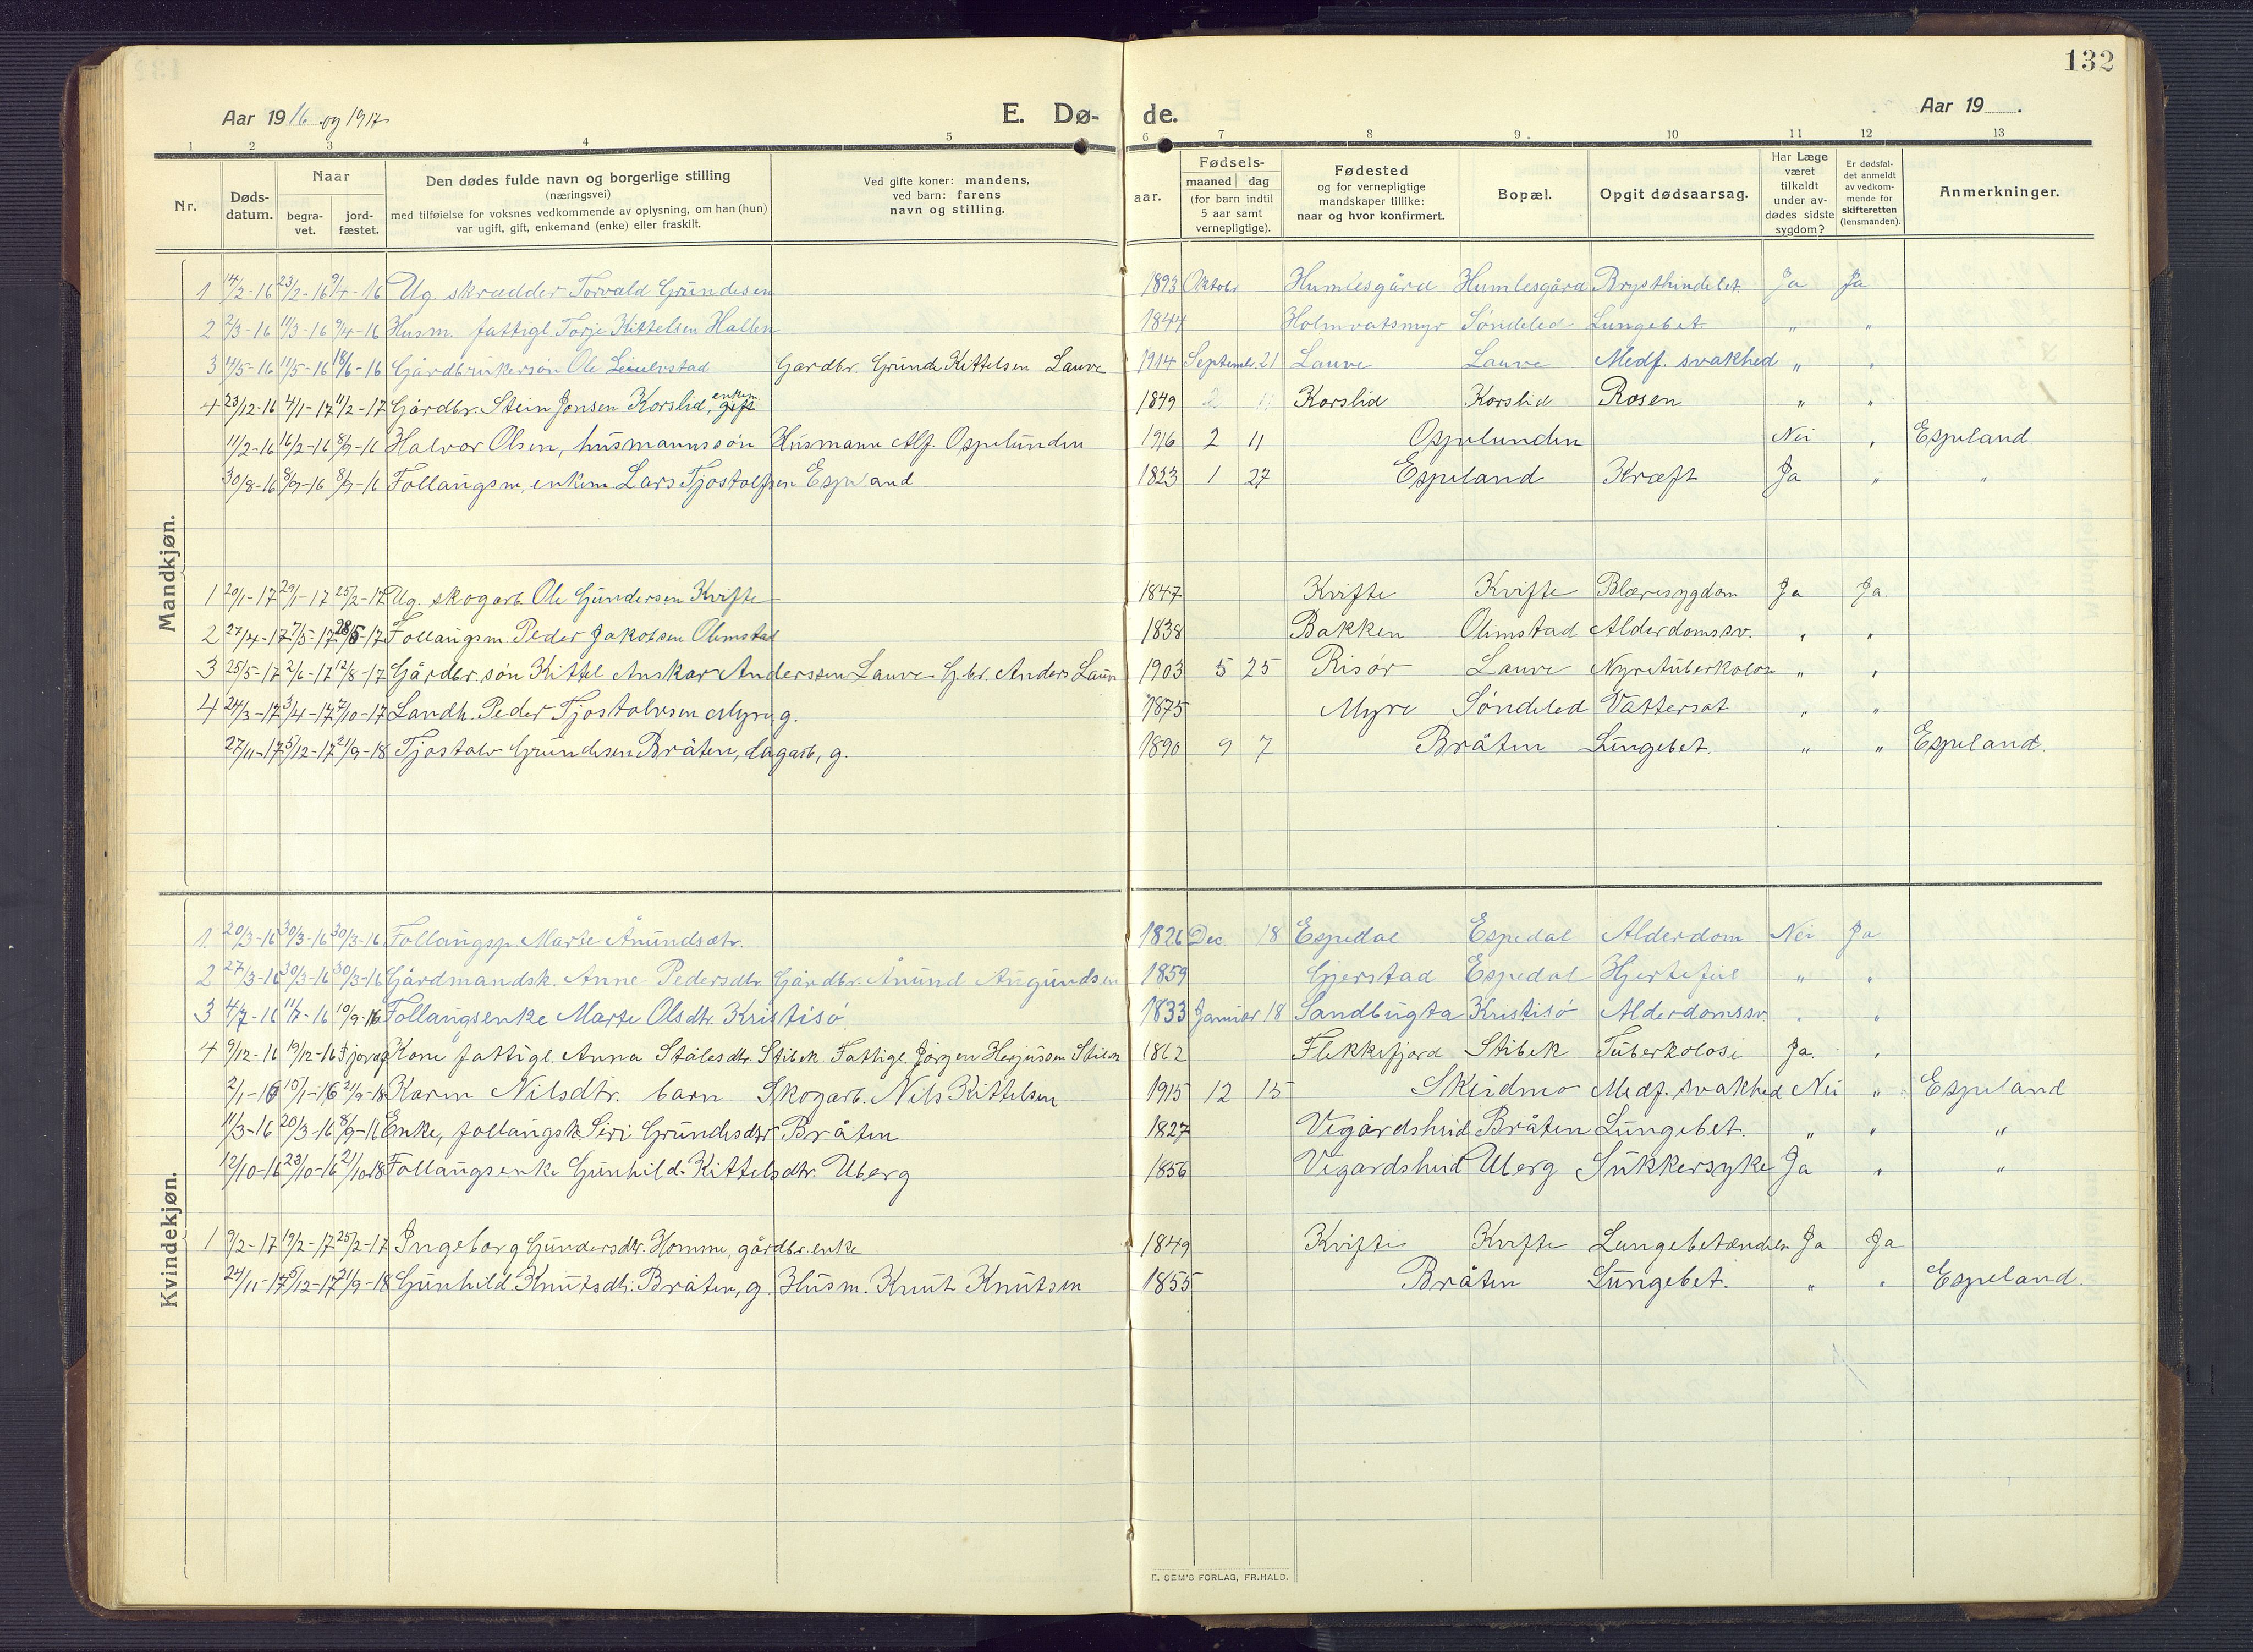 132
Aar 1916 og 1917
E. Dø- de.
Aar 19 .
1 2 3 4 5 6 7 8 9 10 11 12 13
Nr.
Døds-
datum.
Naar
begra-
vet.
jord-
fæstet.
Den dødes fulde navn og borgerlige stilling
(næringsvei)
med tilføielse for voksnes vedkommende av oplysning, om han (hun)
var ugift, gift, enkemand (enke) eller fraskilt.
Ved gifte koner: mandens,
ved barn: farens
navn og stilling.
aar.
Fødsels-
maaned dag
(for barn indtil
5 aar samt
vernepligtige).
Fødested
og for vernepligtige
mandskaper tillike:
naar og hvor konfirmert.
Bopæl.
Opgit dødsaarsag.
Har Læge
været
tilkaldt
under av-
dødes sidste
sygdom?
Er dødsfal-
det anmeldt
av vedkom-
mende for
skifteretten
(lensmanden).
Anmerkninger.
Mandkjøn.
1 14/2-16 23/2-16 9/4-16 Ug. skrædder Torvald Grundesen 1893 Oktob. Humlesgård Humlesgård Brysthindebet. Ja Ja
2 2/3-16 11/3-16 9/4-16 Husm. fattigl. Torje Kittelsen Hallen 1844 Holmvatsmyr Søndeled Lungebet. " "
3 4/5-16 11/5-16 18/6-16 Gårdbrukersøn Ole Gardbr. Grunde Kittelsen Lauve 1914 Septemb. 21 Lauve Lauve Medf. svakhed " "
4 23/12-16 4/1-17 11/2-17 Gårdbr. Stein Jonsen Korslid, gift enkem. 1849 Korslid Korslid Rosen " "
11/2-16 16/2-16 8/9-16 Halvor Olsen, husmannssøn Husmann Alf. Ospelunden 1916 2 11 Ospelunden Nei " Espeland
30/8-16 8/9-16 8/9-16 Follaugsm, enkem. Lars Tjostolfsen Espeland 1823 1 27 Espeland Kræft Ja " "
1 20/1-17 29/1-17 25/2-17 Ug. skogarb. Ole Gundersen Kvifte 1847 Kvifte Kvifte Blæresygdom Ja Ja
2 27/4-17 7/5-17 28/5-17 Follaugsm. Peder Jakobsen Olimstad 1838 Bakken Olimstad Alderdomssv. " "
3 25/5-17 2/6-17 12/8-17 Gårdbr. søn Kittel Anskar Anderssen Lauve G.br. Anders Lauve 1903 5 25 Risør Lauve Nyretuberkolos " "
4 24/3-17 3/4-17 7/10-17 Landh. Peder Tjostolvsen Myre, g. 1875 Myre Søndeled Vattersot " "
27/11-17 5/12-17 21/9-18 Tjostolv Grundesen Bråten, dagarb, g. 1890 9 7 Bråten Lungebet. " " Espeland.
Kvindekjøn.
1 20/3-16 30/3-16 30/3-16 Follaugsp. Marte Ånundsdtr. 1826 Dec 18 Espedal Espedal Alderdom Nei Ja
2 27/3-16 30/3-16 30/3-16 Gårdmandsk. Anne Pedersdtr. Gårdbr. Ånund Augundsen 1859 Gjerstad Espedal Hjertefeil " "
3 4/7-16 11/7-16 10/9-16 Follaugsenke Marte Olsdtr. Kristisø 1833 Januar 18 Sandbugta Kristisø Alderdomssv. " "
4 9/12-16 19/12-16 Kone fattigl. Anna Stålesdtr. Stibek. Fattigl. Jørgen Herjussen Stibek 1862 Flekkefjord Stibek Tuberkolose Ja. "
2/1-16 10/1-16 21/9-18 Karen Nilsdtr. barn Skogarb. Nils Kittelsen 1915 12 15 Skeidmo Medf. svakhed Nei " Espeland
11/3-16 20/3-16 8/9-16 Enke, follaugsk. Siri Grundesdtr Bråten 1827 Vegårdsheid Bråten Lungebet. " " "
12/10-16 23/10-16 21/10-18 Follaugsenke Gunhild Kittelsdtr. Uberg 1856 Vegardsheid Uberg Sukkersyke Ja " "
1 9/2-17 19/2-17 25/2-17 Ingeborg Gundersdtr. Homme, gårdbr.enke 1849 Kvifte Kvifte Lungebetændelse Ja Ja
24/11-17 5/12-17 21/9-18 Gunhild Knutsdtr. Bråten, g. Husm. Knut Knutsen 1855 Bråten Lungebet. " " Espeland.
E. SEM'S FORLAG, FR.HALD.